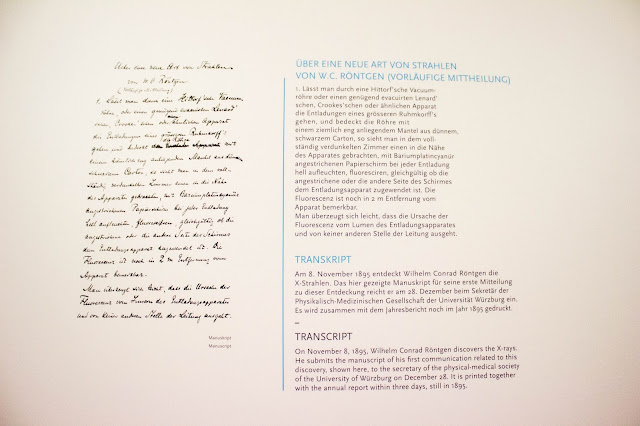 Ueber eine neue Art von Strahlen
von W. C. Röntgen
(Vorläufige Mittheilung)
1. Lässt man durch eine Hittorf'sche Vacuum-
röhre, oder einen genügend evacuirten Lenard'
schen, Crookes'schen oder ähnlichen Apparat
die Entladungen eines grösseren Ruhmkorff's
gehen und bedeckt die Röhre mit
einem ziemlich eng anliegenden Mantel aus dünnem,
schwarzem Carton, so sieht man in dem voll-
ständig verdunkelten Zimmer einen in die Nähe
des Apparates gebrachten, mit Bariumplatincyanür
angestrichenen Papierschirm bei jeder Entladung
hell aufleuchten, fluoresciren, gleichgültig ob die
angestrichene oder die andere Seite des Schirmes
dem Entladungsapparat zugewendet ist. Die
Fluorescenz ist noch in 2 m Entfernung vom
Apparat bemerkbar.
Man überzeugt sich leicht, dass die Ursache der
Fluorescenz vom Lumen des Entladungsapparates
und von keiner anderen Stelle der Leitung ausgeht.
Manuskript
Manuscript
ÜBER EINE NEUE ART VON STRAHLEN
VON W.C. RÖNTGEN (VORLÄUFIGE MITTHEILUNG)
1. Lässt man durch eine Hittorf'sche Vacuum-
röhre oder einen genügend evacuirten Lenard'
schen, Crookes'schen oder ähnlichen Apparat
die Entladungen eines grösseren Ruhmkorff's
gehen, und bedeckt die Röhre mit
einem ziemlich eng anliegendem Mantel aus dünnem,
schwarzem Carton, so sieht man in dem voll-
ständig verdunkelten Zimmer einen in die Nähe
des Apparates gebrachten, mit Bariumplatincyanür
angestrichenen Papierschirm bei jeder Entladung
hell aufleuchten, fluoresciren, gleichgültig ob die
angestrichene oder die andere Seite des Schirmes
dem Entladungsapparat zugewendet ist. Die
Fluorescenz ist noch in 2 m Entfernung vom
Apparat bemerkbar.
Man überzeugt sich leicht, dass die Ursache der
Fluorescenz vom Lumen des Entladungsapparates
und von keiner anderen Stelle der Leitung ausgeht.
TRANSKRIPT
Am 8. November 1895 entdeckt Wilhelm Conrad Röntgen die
X-Strahlen. Das hier gezeigte Manuskript für seine erste Mitteilung
zu dieser Entdeckung reicht er am 28. Dezember beim Sekretär der
Physikalisch-Medizinischen Gesellschaft der Universität Würzburg ein.
Es wird zusammen mit dem Jahresbericht noch im Jahr 1895 gedruckt.
–
TRANSCRIPT
On November 8, 1895, Wilhelm Conrad Röntgen discovers the X-rays.
He submits the manuscript of his first communication related to this
discovery, shown here, to the secretary of the physical-medical society
of the University of Würzburg on December 28. It is printed together
with the annual report within three days, still in 1895.